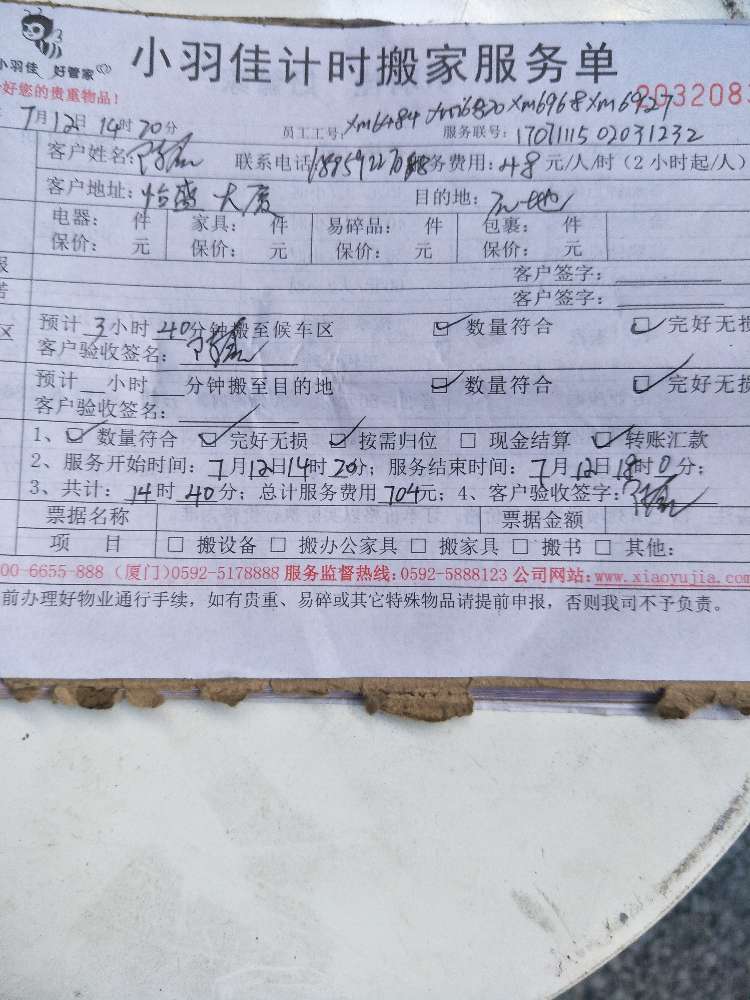 小羽佳 好管家
小羽佳计时搬家服务单
好您的贵重物品！
2032083
7月12日14时20分
员工工号：xm6484 xm6820 xm6968 xm6927
服务联号：17071115 02031232
客户姓名： 联系电话 务费用：48元/人/时（2小时起/人）
客户地址：怡盛大厦 目的地：
电器： 件 家具： 件 易碎品： 件 包裹： 件
保价： 元 保价： 元 保价： 元 保价： 元
客户签字：
客户签字：
预计3小时40分钟搬至候车区 数量符合 完好无损
客户验收签名：
预计 小时 分钟搬至目的地 数量符合 完好无损
客户验收签名：
1、数量符合 完好无损 按需归位 现金结算 转账汇款
2、服务开始时间：7月12日14时20分；服务结束时间：7月12日18时0分；
3、共计：14时40分；总计服务费用704元；4、客户验收签字：
票据名称 票据金额
项 目 □ 搬设备 □ 搬办公家具 □ 搬家具 □ 搬书 □ 其他：
00-6655-888（厦门）0592-5178888 服务监督热线：0592-5888123 公司网站：www.xiaoyujia.com
前办理好物业通行手续，如有贵重、易碎或其它特殊物品请提前申报，否则我司不予负责。